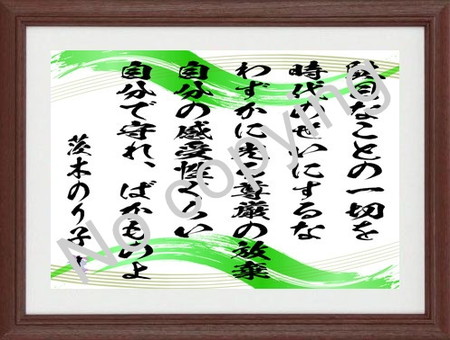 駄目なことの一切を
時代のせいにするな
わずかに光る尊厳の放棄
自分の感受性くらい
自分で守れ、ばかものよ
茨木のり子
No copying